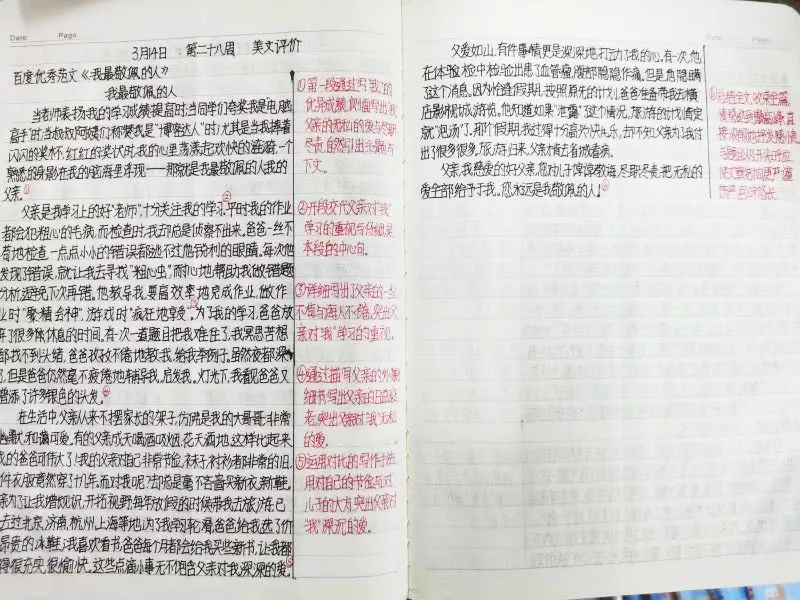 Date: Page:
3月14日 第二十八周 美文评价
百度优秀范文《我最敬佩的人》
我最敬佩的人
当老师表扬我的学习成绩提高时;当同学们夸奖我是"电脑
高手"时;当叔叔阿姨们称赞我是"博客达人"时;尤其是当我捧着
闪闪的奖杯、红红的奖状时,我的心里荡漾起欢快的涟漪,一个
熟悉的身影在我的脑海里浮现——那就是我最敬佩的人我的
父亲。①
父亲是我学习上的好"老师",十分关注我的学习。②平时我的作业
都会犯粗心的毛病,而检查时,我却总是侦察不出来。爸爸一丝不
苟地检查,一点点小小的错误都逃不过他锐利的眼睛。每次他
发现了错误,就让我去寻找"粗心虫",耐心地帮助我做错题
分析,避免下次再错。他教导我,要高效率地完成作业,做作
业时"聚精会神",游戏时"疯狂地享受"。③为了我的学习,爸爸放
弃了很多休息的时间。有一次一道题目把我难住了,我冥思苦想
都找不到头绪,爸爸孜孜不倦地教我,给我举例子。虽然夜都深
了,但是爸爸仍然毫不疲倦地辅导我、启发我。灯光下,我看见爸爸又
增添了许多银色的头发。④
在生活中,父亲从来不摆家长的架子,仿佛是我的大哥哥,非常
幽默、和蔼可爱。有的父亲成天喝酒吸烟、花天酒地,这样比起来
我的爸爸可伟大了!我的父亲对自己非常节俭,袜子、衬衫都非常的旧,
件衣服竟然穿了九年。而对我呢?却总是毫不吝啬买新衣、新鞋。
亲为了让我增知识、开拓视野每年放假的时候带我去旅游,已
去过北京、济南、杭州、上海等地;为了我学习轮滑,爸爸给我选了价
昂贵的冰鞋;我喜欢看书,爸爸每个月都会给我买些新书,让我都
得很充实、很愉快。这些点滴小事无不包含父亲对我深深的爱。⑤
①第一段通过写"我"的
优异成绩,侧面写出"我"
父亲的无私的爱与尽职
尽责,自然引出主题与
下文。
②开段交代父亲对"我"
学习的重视与仔细,是
本段的中心句。
③详细写出了父亲的一丝
不苟与诲人不倦,突出父
亲对"我"学习的重视。
④通过描写父亲的外貌
细节,写出父亲的日益衰
老,突出父亲对"我"无私
的爱。
⑤运用对比的写作手法,
用对自己的节俭与对
儿子的大方,突出父亲对
"我"深沉的爱。
Date: Page:
父爱如山,有件事情更是深深地打动了我的心。有一次,他
在体验检中检验出患了血管瘤,腹部隐隐作痛。但是,他隐瞒
了这个消息,因为恰逢假期,按照原先的计划,爸爸准备带我去横
店影视城游览。他知道如果"泄露"这个情况,旅游的计划肯定
就"泡汤"了。那个假期,我过得十分高兴、快乐,却不知父亲为了我付
出了很多很多。旅游归来,父亲才去省城看病。
父亲,我慈爱的好父亲,您对儿子谆谆教诲、尽职尽责,把无私的
爱全部给予了我。您永远是我最敬佩的人!⑥
⑥总结全文,收束全篇,
情感达到最高峰,直
接